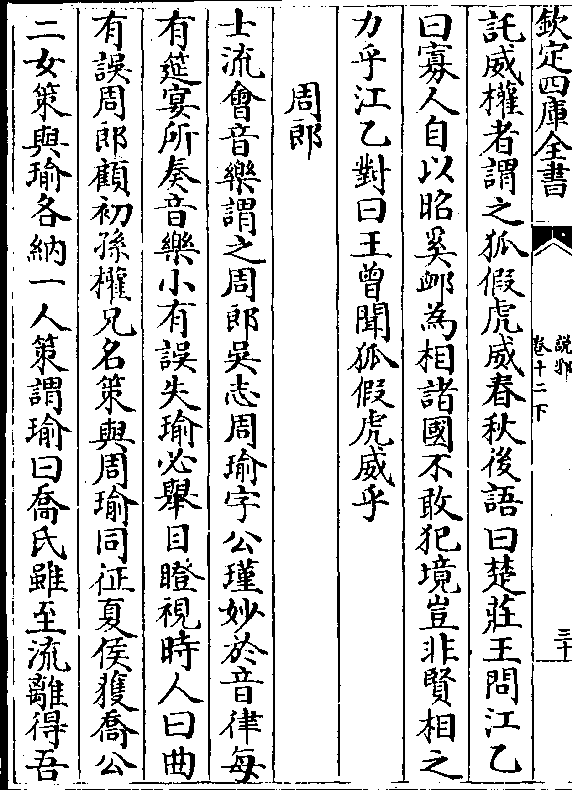 欽定四庫全書
說郛
卷十二下
三十
託威權者謂之狐假虎威春秋後語曰楚莊王問江乙
曰寡人自以昭奚䘏為相諸國不敢犯境豈非賢相之
力乎江乙對曰王曾聞狐假虎威乎
周郎
士流會音樂謂之周郎吳志周瑜字公瑾妙於音律每
有筵宴所奏音樂小有誤失瑜必舉目瞪視時人曰曲
有誤周郎顧初孫權兄名策與周瑜同征夏侯獲喬公
二女策與瑜各納一人策謂瑜曰喬氏雖至流離得吾